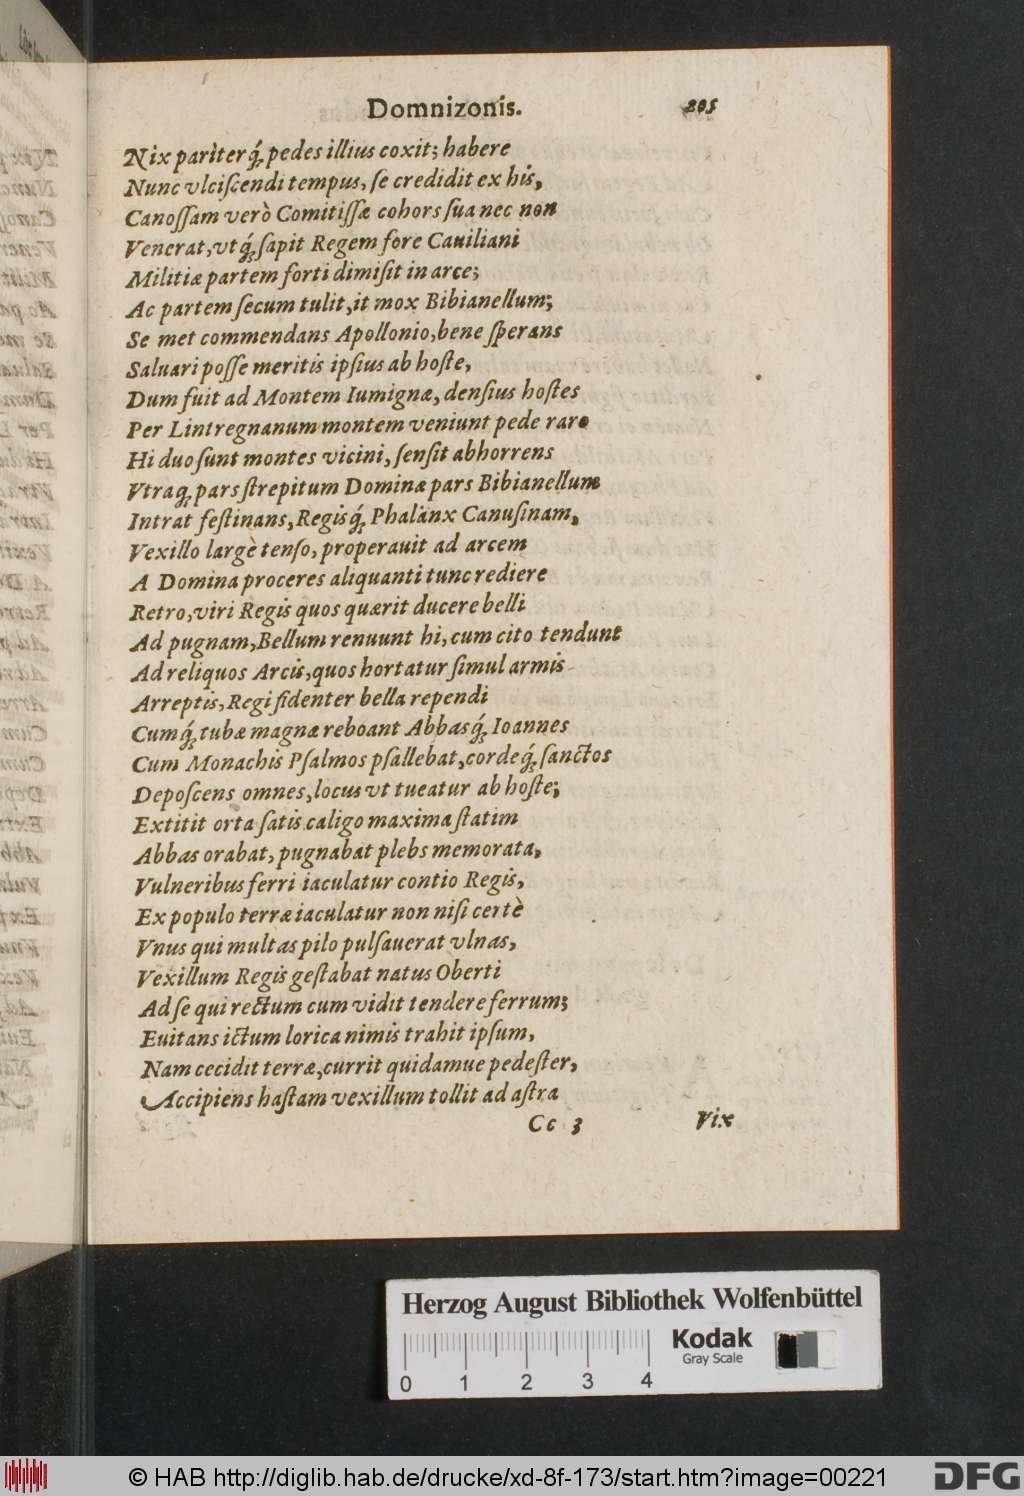 Domnizonis. 205
Nix pariterq́; pedes illius coxit; habere
Nunc vlciſcendi tempus, ſe credidit ex his,
Canoſſam verò Comitiſſæ cohors ſua nec non
Venerat, vt q́; ſapit Regem fore Cauiliani
Militiæ partem forti dimiſit in arce;
Ac partem ſecum tulit, it mox Bibianellum;
Se met commendans Apollonio, bene ſperans
Saluari poſſe meritis ipſius ab hoſte,
Dum fuit ad Montem Iumignæ, denſius hoſtes
Per Lintregnanum montem veniunt pede raro
Hi duo ſunt montes vicini, ſenſit abhorrens
Vtraq; pars ſtrepitum Dominæ pars Bibianellum
Intrat feſtinans, Regisq́; Phalanx Canuſinam,
Vexillo largè tenſo, properauit ad arcem
A Domina proceres aliquanti tunc rediere
Retro, viri Regis quos quærit ducere belli
Ad pugnam, Bellum renuunt hi, cum cito tendunt
Ad reliquos Arcis, quos hortatur ſimul armis
Arreptis, Regi fidenter bella rependi
Cumq́; tubæ magnæ reboant Abbasq́; Ioannes
Cum Monachis Pſalmos pſallebat, cordeq́; ſanctos
Depoſcens omnes, locus vt tueatur ab hoſte;
Extitit orta ſatis caligo maxima ſtatim
Abbas orabat, pugnabat plebs memorata,
Vulneribus ferri iaculatur contio Regis,
Ex populo terræ iaculatur non niſi certè
Vnus qui multas pilo pulſauerat vlnas,
Vexillum Regis geſtabat natus Oberti
Ad ſe qui rectum cum vidit tendere ferrum;
Euitans ictum lorica nimis trahit ipſum,
Nam cecidit terræ, currit quidamue pedeſter,
Accipiens haſtam vexillum tollit ad aſtra
Cc 3 Vix
Herzog August Bibliothek Wolfenbüttel
Kodak
Gray Scale
0 1 2 3 4
© HAB http://diglib.hab.de/drucke/xd-8f-173/start.htm?image=00221 DFG